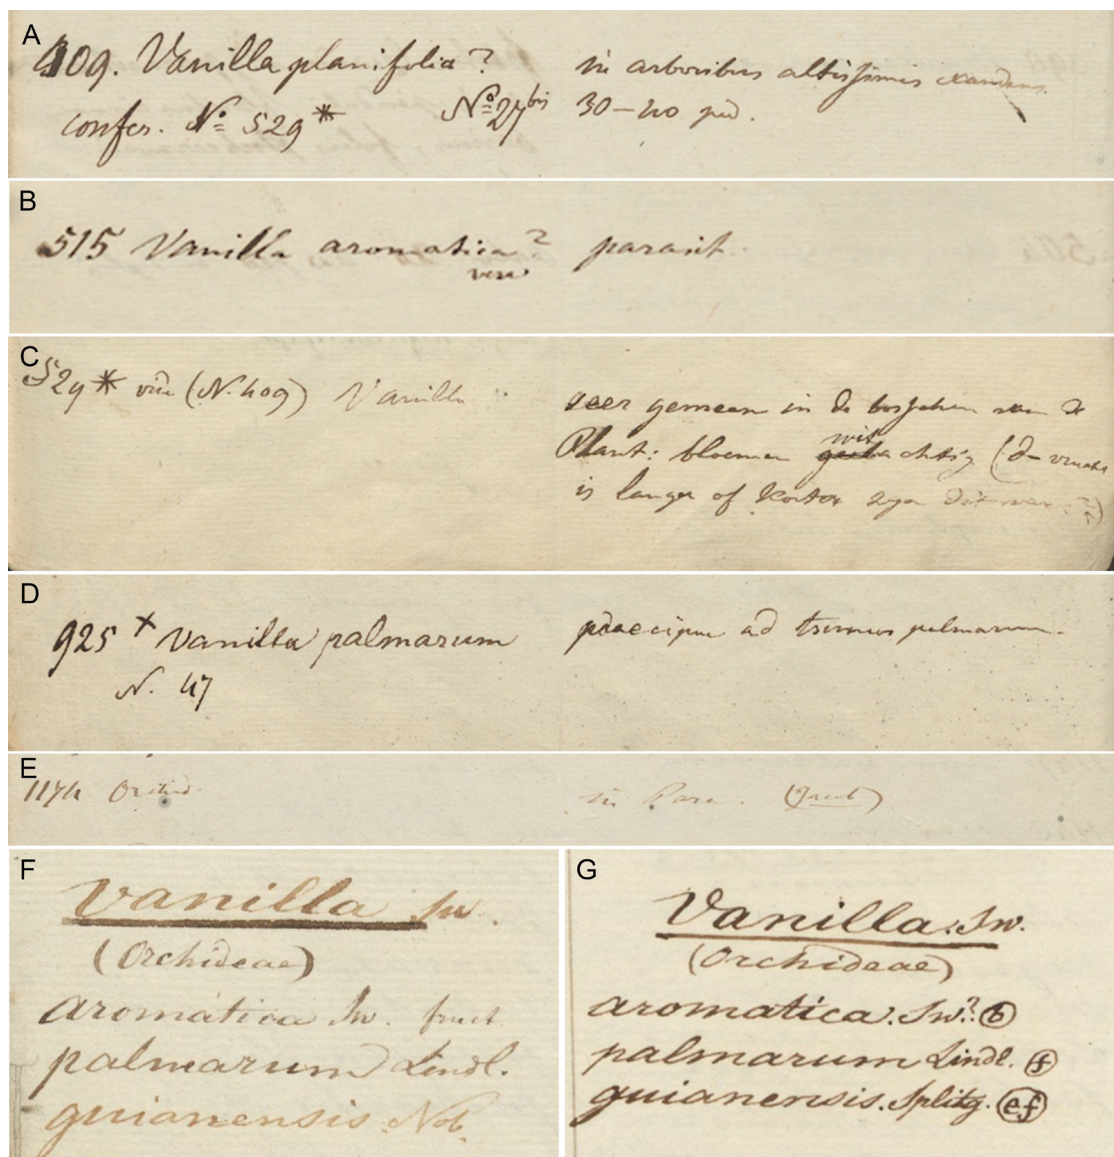 A
409. Vanilla planifolia? in arboribus altissimis scandens
confer. No 529* No 27bis 30-40 ped.
B
515 Vanilla aromatica? parasit.
vera
C
529* vide (N. 409) Vanilla
zeer gemeen in de bosschen van de
Plant: bloemen wit achtig (de vrucht
is langer of korter
D
925 + Vanilla palmarum praecipue ad truncos palmarum.
N. 47
E
1174 Orchid. in Para. (Jacob)
F
Vanilla Sw.
(Orchideae)
aromatica Sw. fruct
palmarum Lindl.
guianensis Nob.
G
Vanilla. Sw.
(Orchideae)
aromatica. Sw.? b
palmarum Lindl. f
guianensis. Splitg. e.f